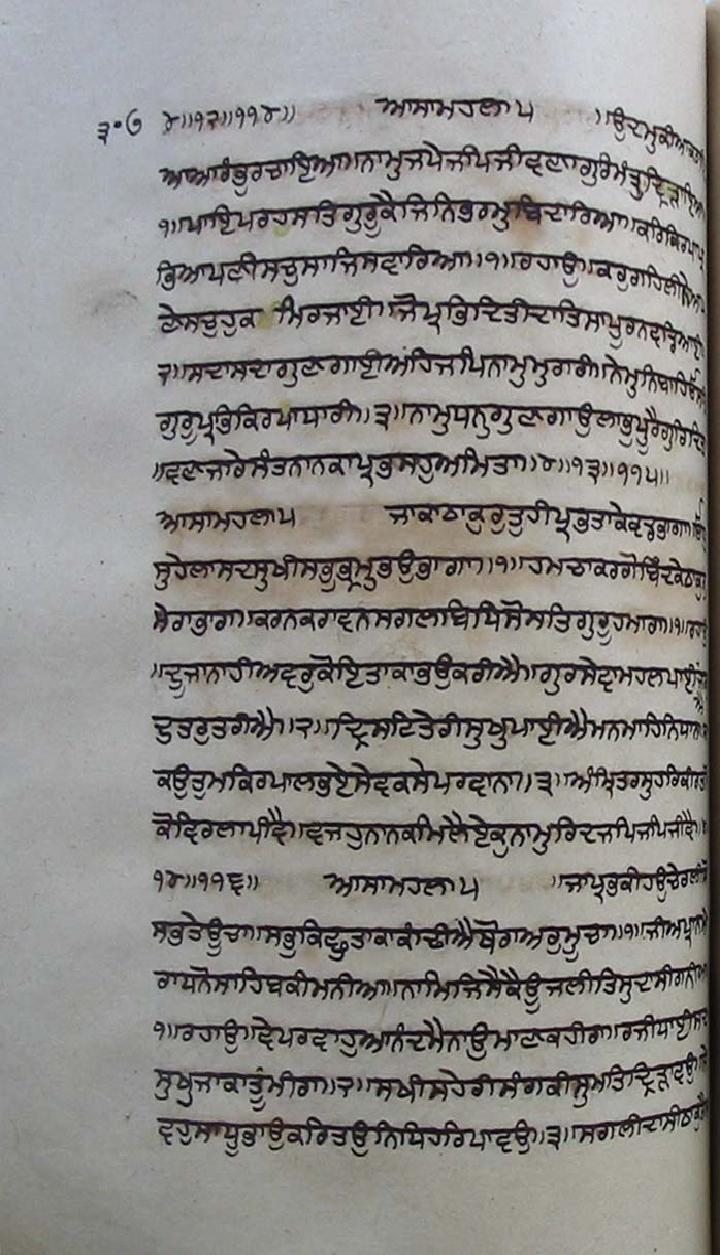 ੩੦੭ ੪॥੧੨॥੧੧੪॥ ਆਸਾਮਹਲਾ ੫ ॥ਉਦਮੁਕੀਆ
ਆਆਰੰਭੁਰਚਾਇਆ॥ਨਾਮੁਜਪੇਜਪਿਜੀਵਣਾਗੁਰਿਮੰਤ੍ਰੁਦ੍ਰਿੜਾਇਆ
੧॥ਪਾਇਪਰਹਸਤਿਗੁਰੂਕੈਜਿਨਿਭਰਮੁਬਿਦਾਰਿਆ॥ਕਰਿਕਿਰਪਾਪ੍ਰ
ਭਿਆਪਣੀਸਚੁਸਾਜਿਸਵਾਰਿਆ॥੧॥ਰਹਾਉ॥ਕਰੁਗਹਿਲੀਨੇਆਪ
ਣੇਸਚੁਹੁਕ ਮਿਰਜਾਈ॥ਜੋਪ੍ਰਭਿਦਿਤੀਦਾਤਿਸਾਪੂਰਨਵਡਿਆਈ
੨॥ਸਦਾਸਦਾਗੁਣਗਾਈਅਹਿਜਪਿਨਾਮੁਮੁਰਾਰੀ॥ਨੇਮੁਨਿਬਾਹਿਓ
ਗੁਰੁਪ੍ਰਭਿਕਿਰਪਾਧਾਰੀ॥੩॥ਨਾਮੁਧਨੁਗੁਣਗਾਉਲਾਭੁਪੂਰੈਗੁਰਿਦਿ
॥ਵਣਜਾਰੇਸੰਤਨਾਨਕਾਪ੍ਰਭੁਸਾਹੁਅਮਿਤਾ॥੪॥੧੩॥੧੧੫॥
ਆਸਾਮਹਲਾ੫ ਜਾਕਾਠਾਕੁਰੁਤੁਹੀਪ੍ਰਭਤਾਕੇਵਡਭਾਗਾ॥ਓਹੁ
ਸੁਹੇਲਾਸਦਸੁਖੀਸਭੁਭ੍ਰਮੁਭਉਭਾਗਾ॥੧॥ਹਮਚਾਕਰਗੋਬਿੰਦਕੇਠਾਕੁਰੁ
ਮੇਰਾਭਾਰਾ॥ਕਰਨਕਰਾਵਨਸਗਲਾਬਿਧਿਸੋਸਤਿਗੁਰੂਹਮਾਰਾ॥੧॥ਰਹਾਉ
॥ਦੂਜਾਨਾਹੀਅਵਰੁਕੋਇਤਾਕਾਭਉਕਰੀਐ॥ਗੁਰਸੇਵਾਮਹਲਪਾਈਐ
ਦੁਤਰੁਤਰੀਐ॥੨॥ਦ੍ਰਿਸਟਿਤੇਰੀਸੁਖੁਪਾਈਐਮਨਮਾਹਿਨਿਧਾਨਾ
ਕਉਤੁਮਕਿਰਪਾਲਭਏਸੇਵਕਸੇਪਰਵਾਨਾ॥੩॥ਅੰਮ੍ਰਿਤਰਸੁਹਰਿਕੀਰਤਨੋ
ਕੋਵਿਰਲਾਪੀਵੈ॥ਵਜਹੁਨਾਨਕਮਿਲੈਏਕੁਨਾਮੁਰਿਦਜਪਿਜਪਿਜੀਵੈ॥੪
੧੪॥੧੧੬॥ ਆਸਾਮਹਲਾ੫ ॥ਜਾਪ੍ਰਭਕੀਹਉਚੇਰੁਲੀਸੋ
ਸਭਤੇਉਚਾ॥ਸਭੁਕਿਛੁਤਾਕਾਕਾਂਢੀਐਥੋਰਾਅਰੁਮੂਚਾ॥੧॥ਜੀਅਪ੍ਰਾਨਮੇ
ਰਾਧਨੋਸਾਹਿਬਕੀਮਨੀਆ॥ਨਾਮਿਜਿਸੈਕੈਊਜਲੀਤਿਸੁਦਾਸੀਗਨੀਆ
੧॥ਰਹਾਉ॥ਵੇਪਰਵਾਹੁਆਨੰਦਮੈਨਾਉਮਾਣਕਹੀਰਾ॥ਰਜੀਧਾਈਸਦਾ
ਸੁਖੁਜਾਕਾਤੂੰਮੀਰਾ॥੨॥ਸਖੀਸਹੇਰੀਸੰਗਕੀਸੁਮਤਿਦ੍ਰਿੜਾਵਉ॥ਸੇ
ਵਹੁਸਾਧੂਭਾਉਕਰਿਤਉਨਿਧਿਹਰਿਪਾਵਉ॥੩॥ਸਗਲੀਦਾਸੀਠਾਕੁਰੈ